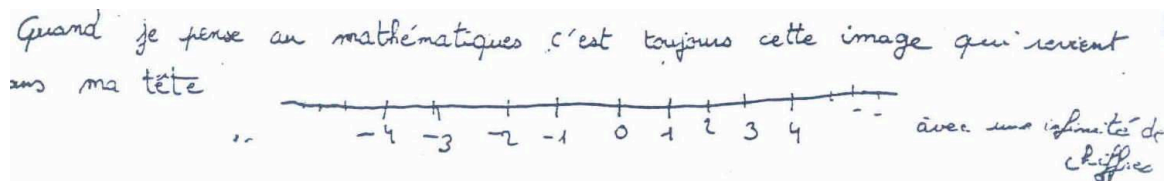 Quand je pense au mathématiques c'est toujours cette image qui revient
ans ma tête
.. -4 -3 -2 -1 0 1 2 3 4 --
avec une infinité de
chiffres